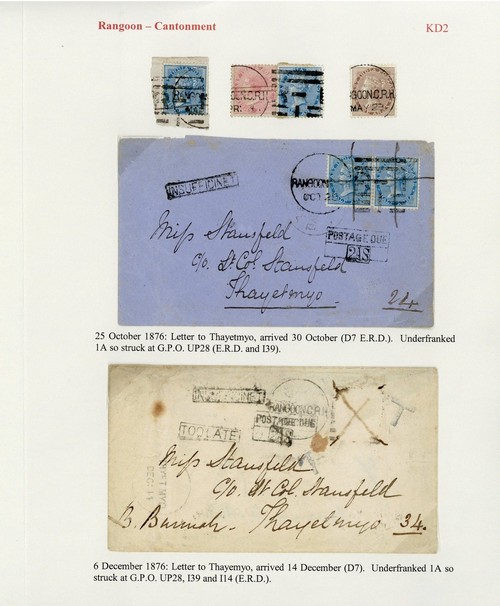 Rangoon – Cantonment
KD2
GOON.C.R.H
MAY 23
INSUFFICINET
RANGOON
OCT 2
POSTAGE DUE
2AS
Miss Stansfeld
c/o. Lt Col. Stansfeld
Thayetmyo.
24
25 October 1876: Letter to Thayetmyo, arrived 30 October (D7 E.R.D.). Underfranked
1A so struck at G.P.O. UP28 (E.R.D. and I39).
INSUFFICINET
RANGOON.C.R.H
POSTAGE DUE
TOO LATE
T
Miss Stansfeld
c/o. Lt Col. Stansfeld
B. Burmah. Thayetmyo 34.
6 December 1876: Letter to Thayemyo, arrived 14 December (D7). Underfranked 1A so
struck at G.P.O. UP28, I39 and I14 (E.R.D.).